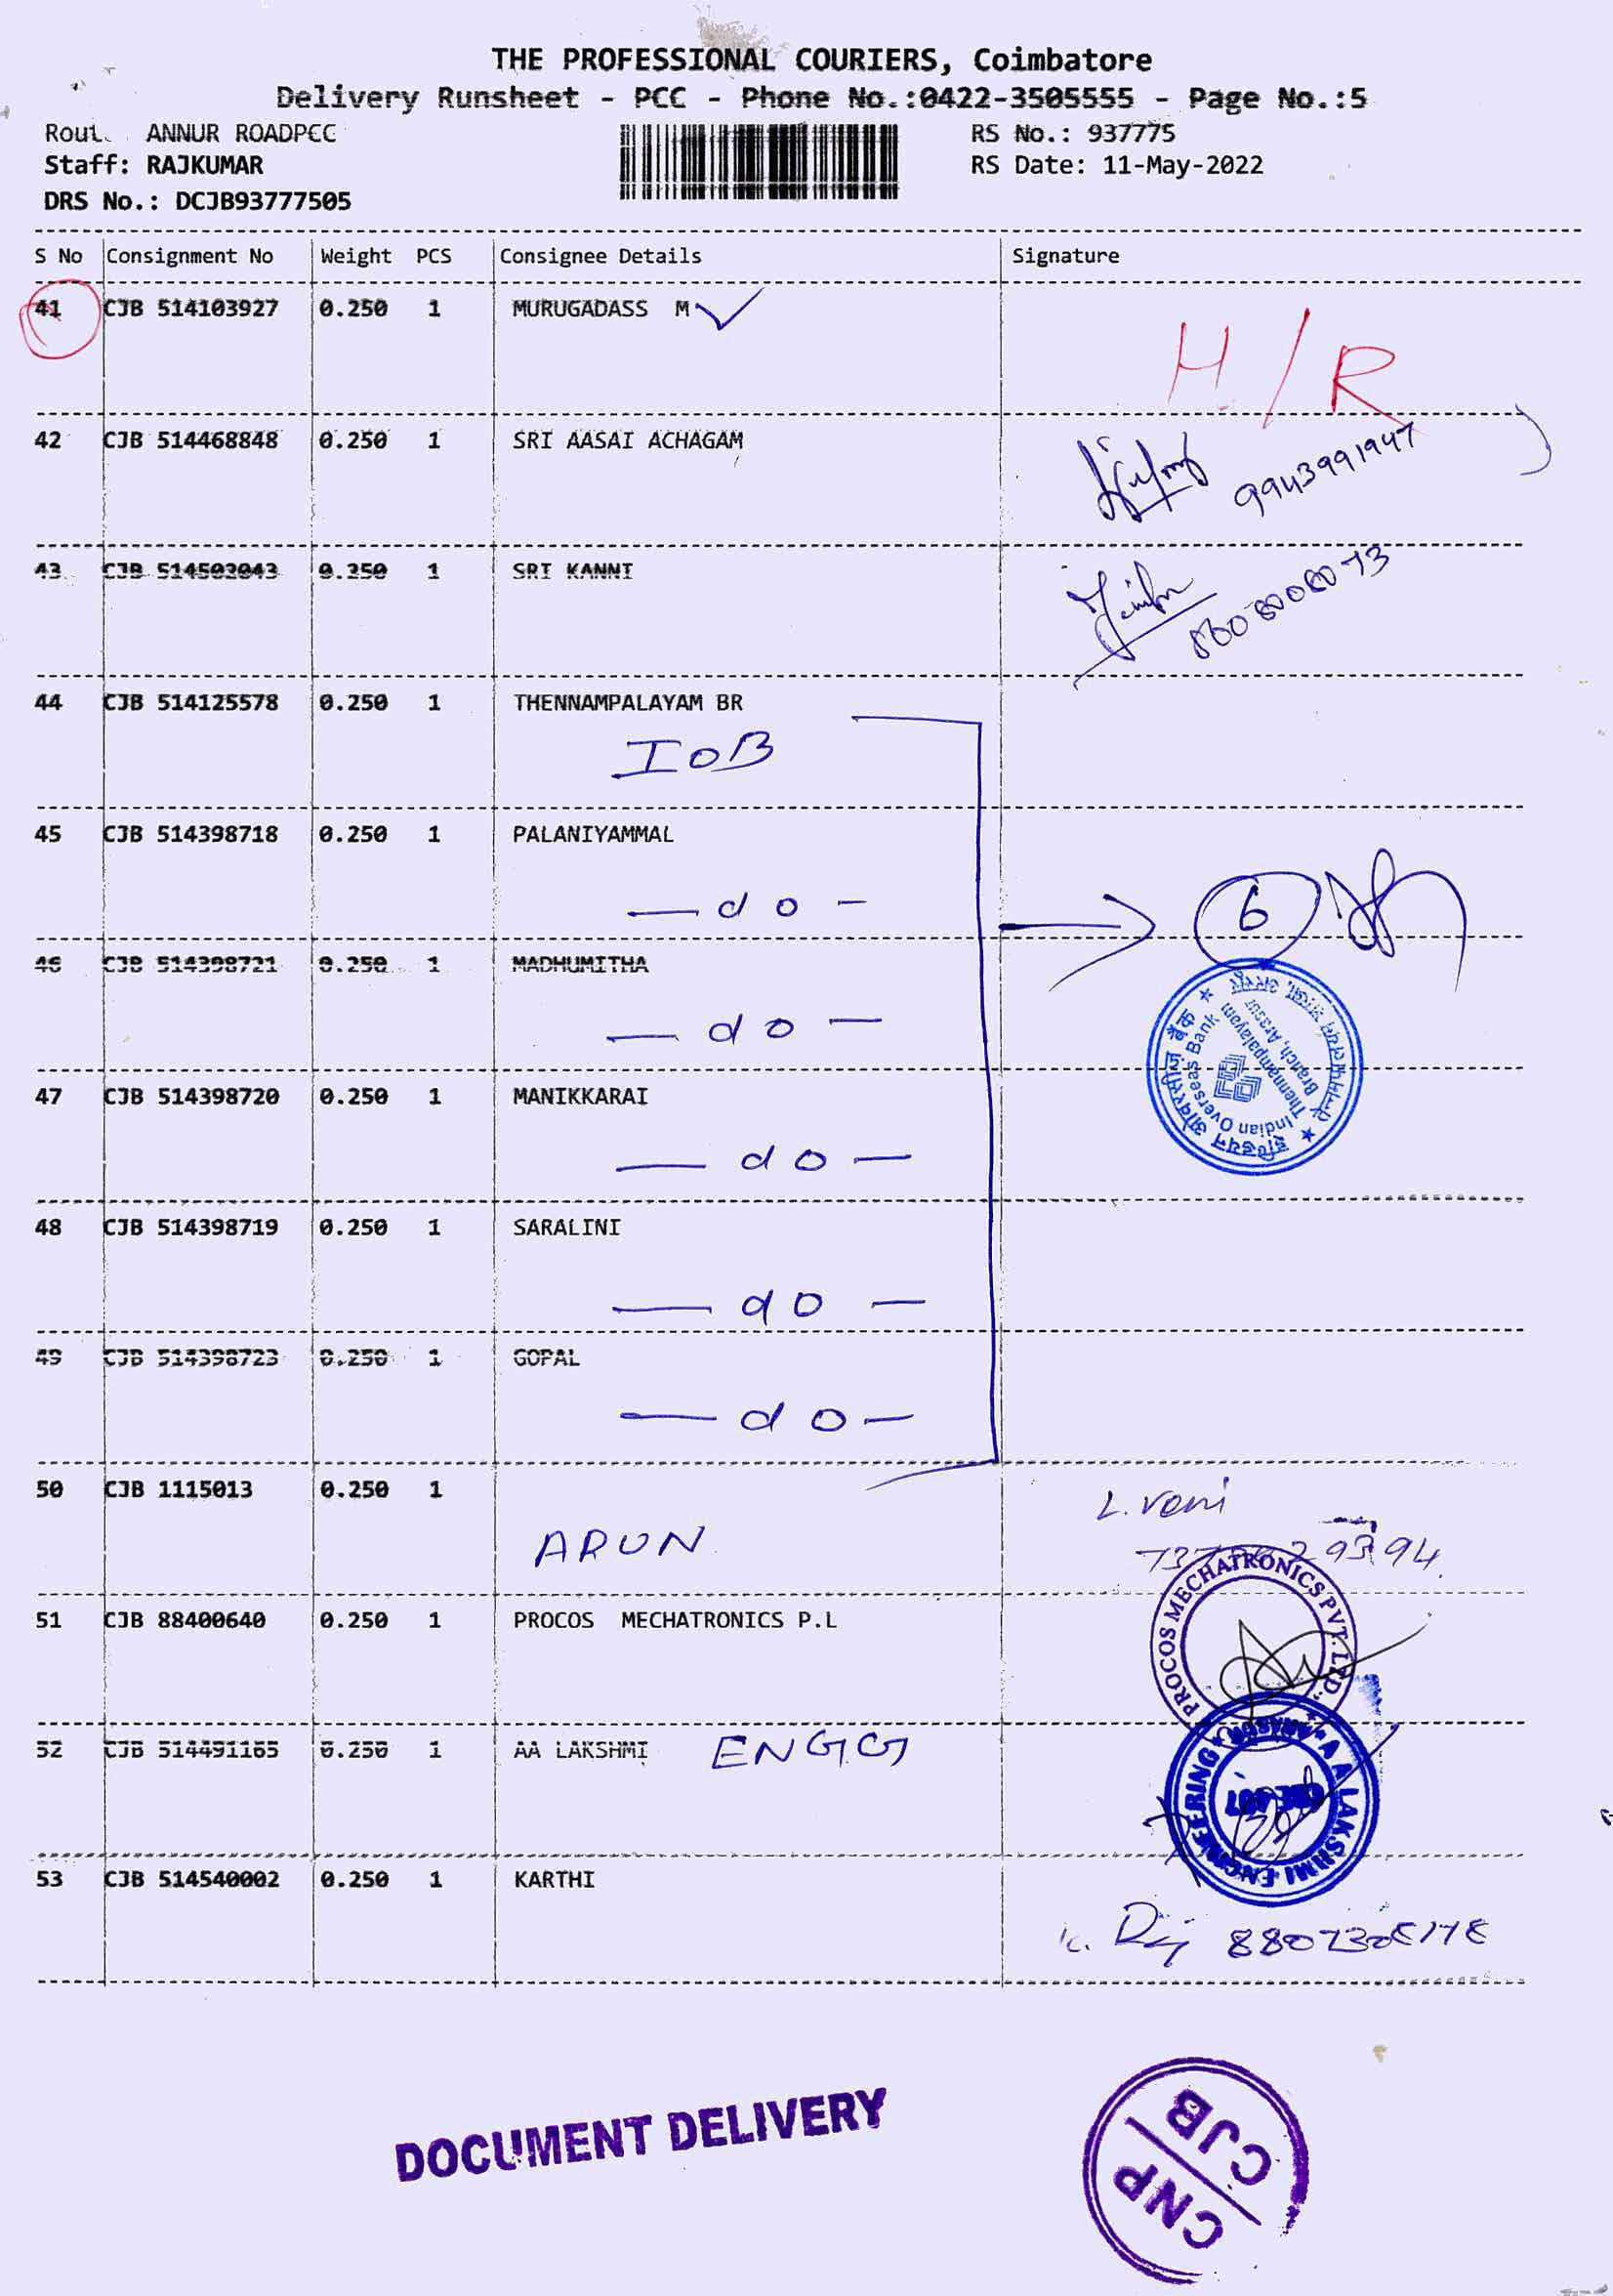 THE PROFESSIONAL COURIERS, Coimbatore
Delivery Runsheet - PCC - Phone No.:0422-3505555 - Page No.:5
ANNUR ROADPCC RS No.: 937775
Staff: RAJKUMAR RS Date: 11-May-2022
DRS No.: DCJB93777505
S No Consignment No Weight PCS Consignee Details Signature
41 CJB 514103927 0.250 1 MURUGADASS M
H/R
42 CJB 514468848 0.250 1 SRI AASAI ACHAGAM
9943991947
43 CJB 514502043 0.250 1 SRI KANNI
44 CJB 514125578 0.250 1 THENNAMPALAYAM BR
IOB
45 CJB 514398718 0.250 1 PALANIYAMMAL
— do — 6
46 CJB 514398721 0.250 1 MADHUMITHA
— do —
इण्डियन ओवरसीज़ बैंक
Indian Overseas Bank
Thennampalayam
Branch, Arasur
47 CJB 514398720 0.250 1 MANIKKARAI
— do —
48 CJB 514398719 0.250 1 SARALINI
— do —
49 CJB 514398723 0.250 1 GOPAL
— do —
50 CJB 1115013 0.250 1
L. Veni
ARUN
51 CJB 88400640 0.250 1 PROCOS MECHATRONICS P.L
PROCOS MECHATRONICS PVT. LTD.,
52 CJB 514491165 0.250 1 AA LAKSHMI ENGG
A A LAKSHMI ENGINEERING ★ ARASUR ★
53 CJB 514540002 0.250 1 KARTHI
DOCUMENT DELIVERY
CNP
CJB